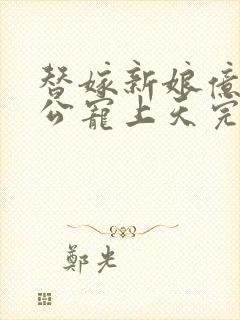 替嫁新娘億
公寵上天完
鄭光